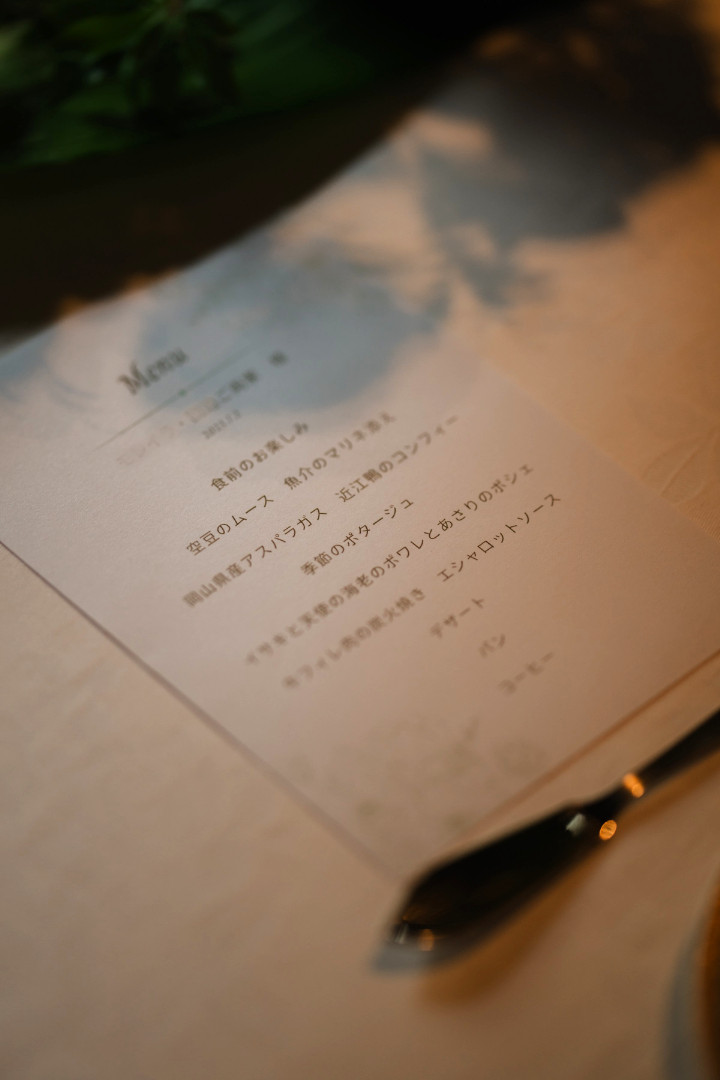 Menu
食前のお楽しみ
空豆のムース　魚介のマリネ添え
岡山県産アスパラガス　近江鴨のコンフィー
季節のポタージュ
イサキと天使の海老のポワレとあさりのポシェ
牛フィレ肉の炭火焼き　エシャロットソース
デザート
パン
コーヒー